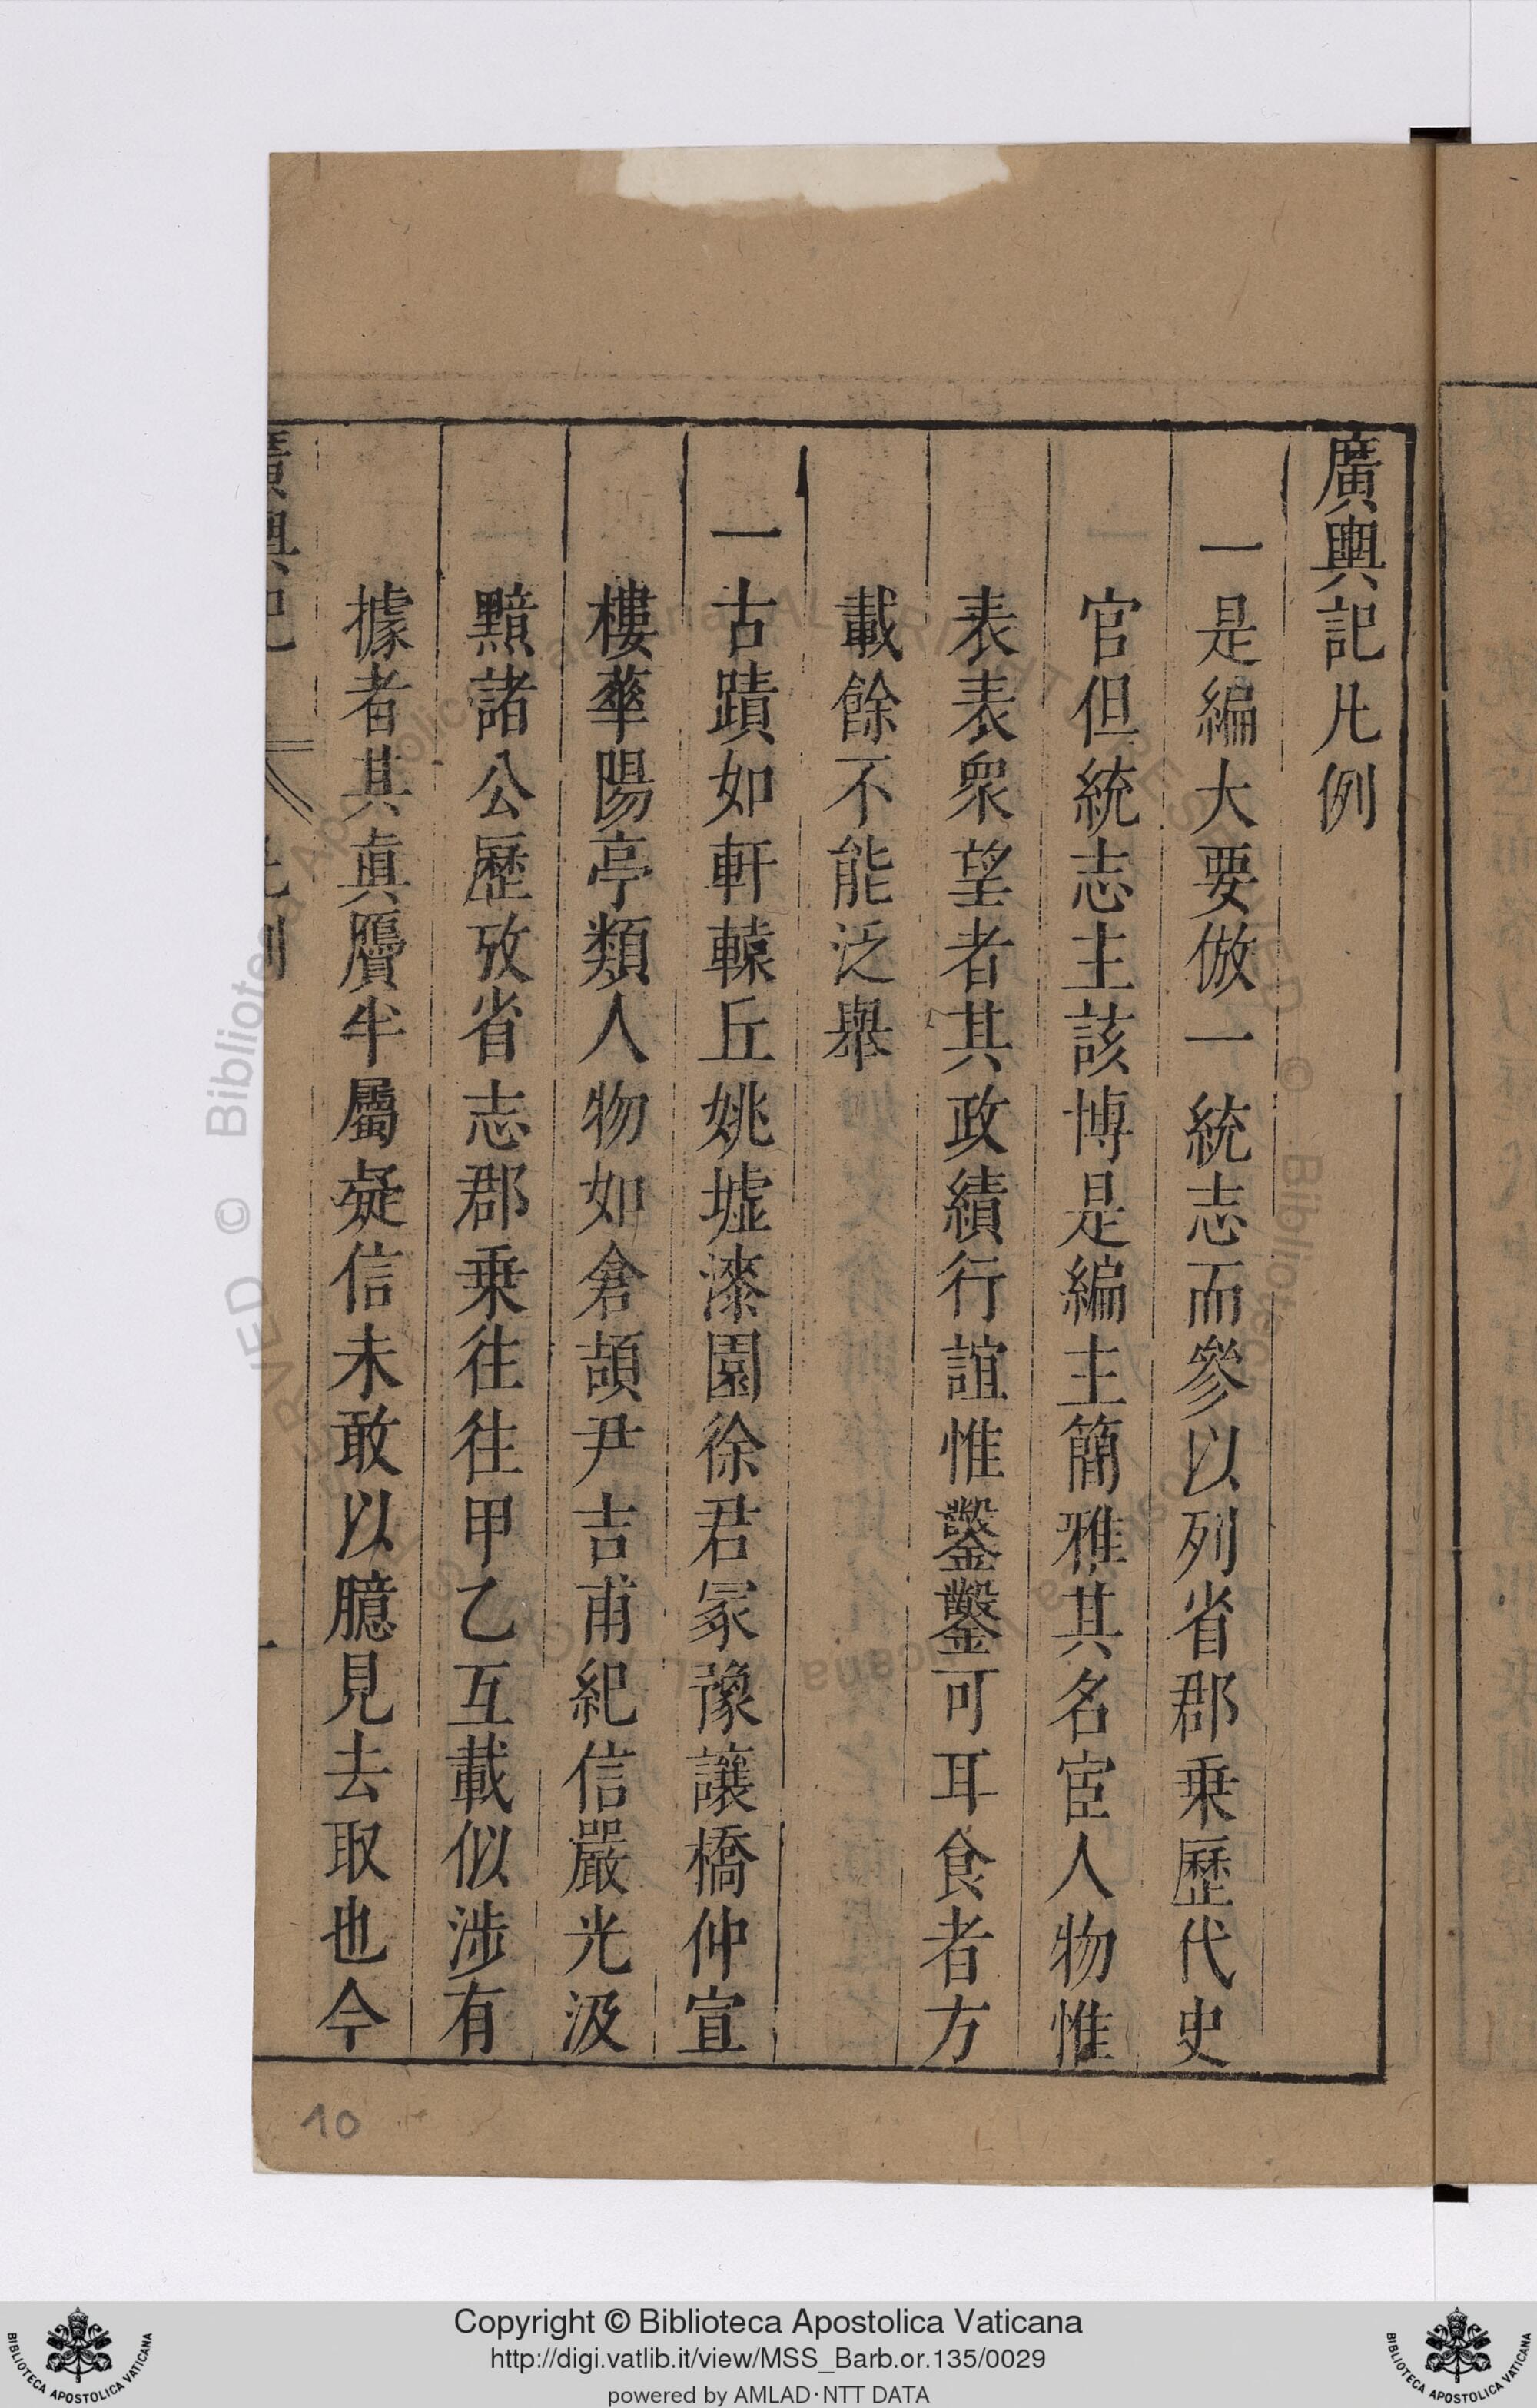 廣輿記凡例
一是編大要倣一統志而參以列省郡乗歷代史
官但統志主該博是編主簡雅其名宦人物惟
表表衆望者其政績行誼惟鑿鑿可耳食者方
載餘不能泛舉
一古蹟如軒轅丘姚墟漆園徐君冢豫讓橋仲宣
樓華陽亭類人物如倉頡尹吉甫紀信嚴光汲
黯諸公歷攷省志郡乗往往甲乙互載似涉有
據者其真贗半屬疑信未敢以臆見去取也今
廣輿記 凡例 一
10
Copyright © Biblioteca Apostolica Vaticana
http://digi.vatlib.it/view/MSS_Barb.or.135/0029
powered by AMLAD·NTT DATA
BIBLIOTECA APOSTOLICA VATICANA
BIBLIOTECA APOSTOLICA VATICANA